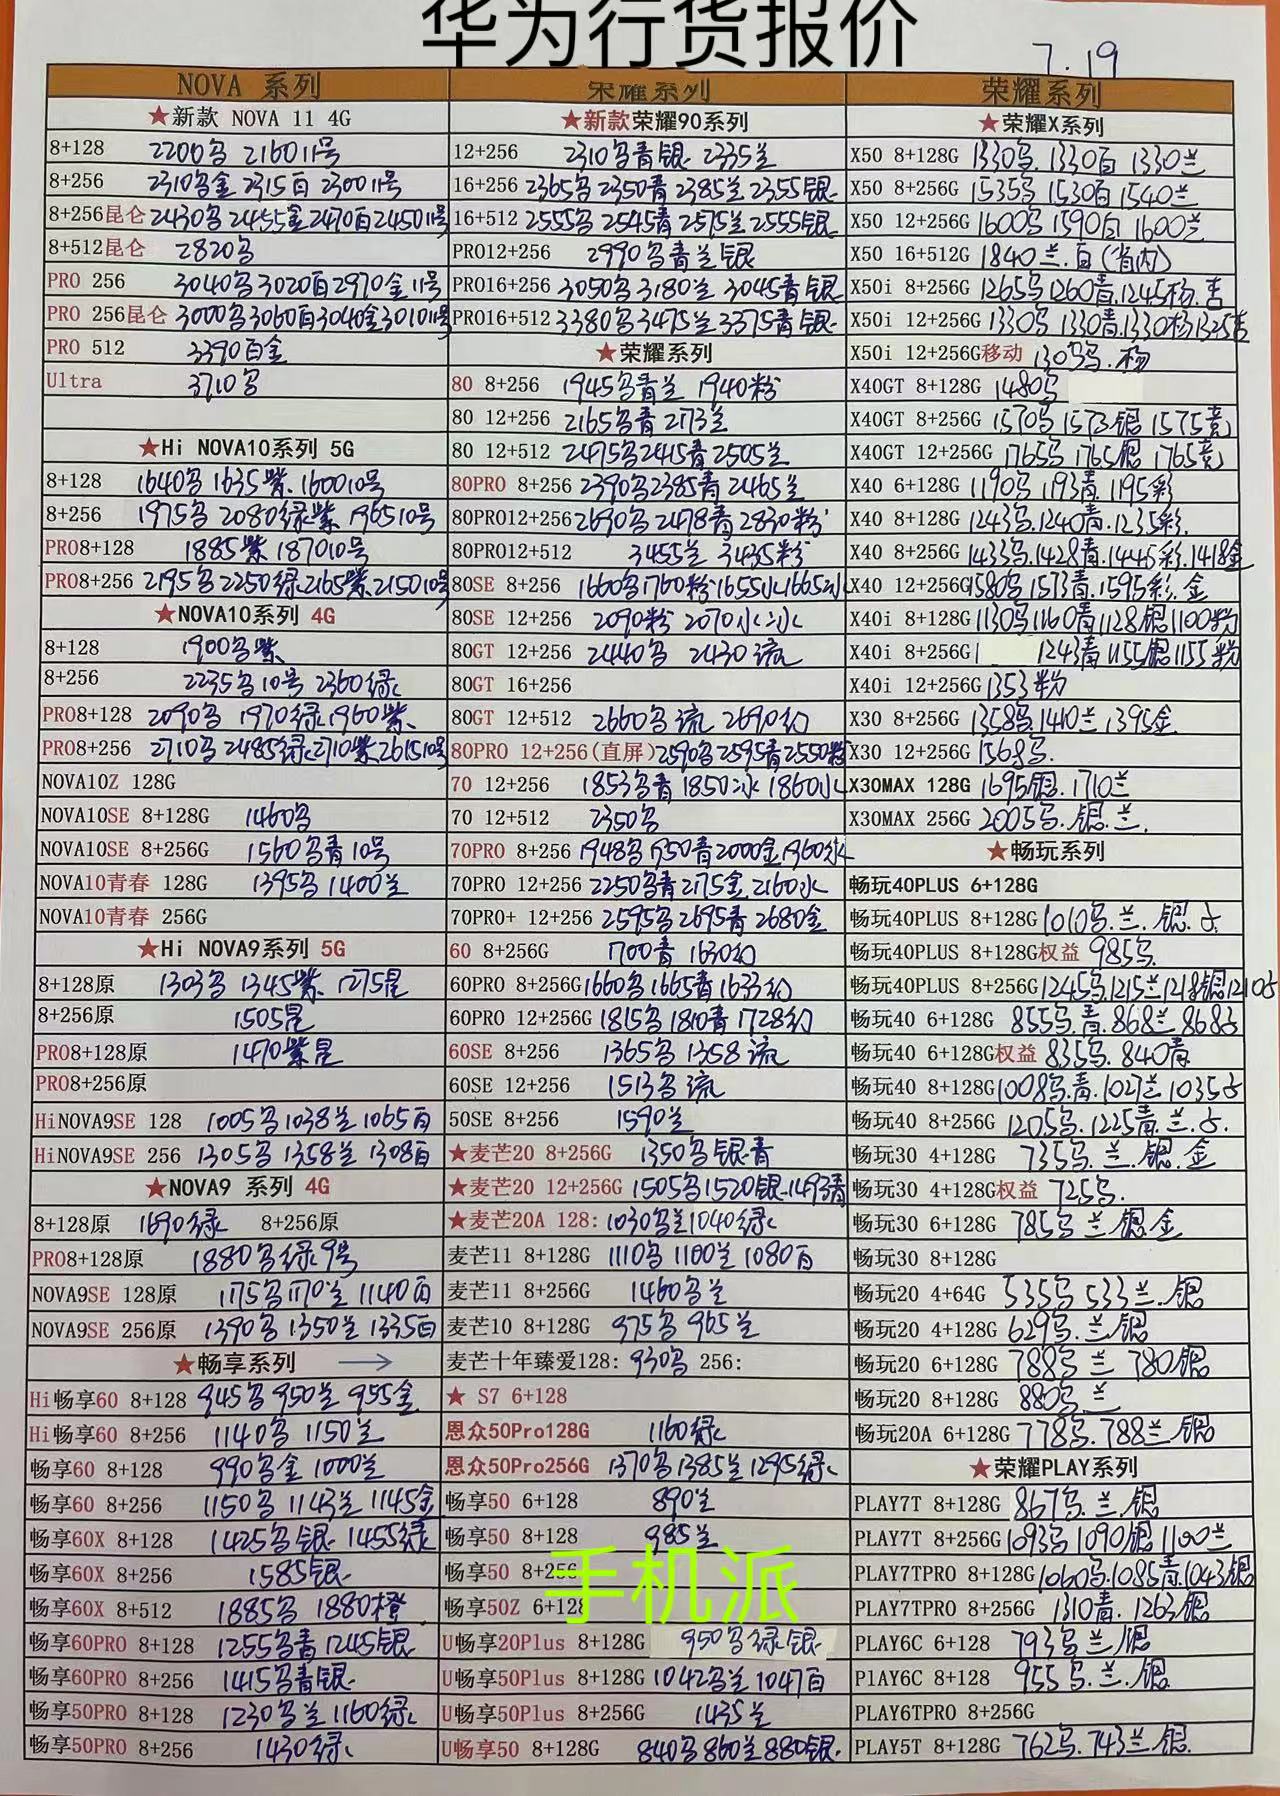 华为行货报价
7.19
NOVA 系列
★新款 NOVA 11 4G
8+128 2200乌 2160 11号
8+256 2310乌金 2315百 2300 11号
8+256昆仑 2430乌 2455金 2470百 2450 11号
8+512昆仑 2820乌
PRO 256 3040乌 3020百 2970金 11号
PRO 256昆仑 3000乌 3060百 3040金 3010 11号
PRO 512 3390百金
Ultra 3710乌
★Hi NOVA10系列 5G
8+128 1640乌 1635紫. 1600 10号
8+256 1975乌 2080绿紫 1965 10号
PRO8+128 1885紫 1870 10号
PRO8+256 2195乌 2250绿 2165紫 2150 10号
★NOVA10系列 4G
8+128 1900乌紫
8+256 2235乌 10号 2360绿
PRO8+128 2090乌 1970绿 1960紫
PRO8+256 2710乌 2485绿 2710紫 2615 10号
NOVA10Z 128G
NOVA10SE 8+128G 1460乌
NOVA10SE 8+256G 1560乌青 10号
NOVA10青春 128G 1395乌 1400兰
NOVA10青春 256G
★Hi NOVA9系列 5G
8+128原 1303乌 1345紫 1275星
8+256原 1505星
PRO8+128原 1470紫星
PRO8+256原
HiNOVA9SE 128 1005乌 1038兰 1065百
HiNOVA9SE 256 1305乌 1358兰 1308百
★NOVA9 系列 4G
8+128原 1690绿 8+256原
PRO8+128原 1880乌绿 9号
NOVA9SE 128原 1175乌 1170兰 1140百
NOVA9SE 256原 1390乌 1350兰 1335百
★畅享系列 →
Hi畅享60 8+128 945乌 950兰 955金
Hi畅享60 8+256 1140乌 1150兰
畅享60 8+128 990乌金 1000兰
畅享60 8+256 1150乌 1143兰 1145金
畅享60X 8+128 1425乌银 1455绿
畅享60X 8+256 1585银
畅享60X 8+512 1885乌 1880橙
畅享60PRO 8+128 1255乌青 1245银
畅享60PRO 8+256 1415乌青银
畅享50PRO 8+128 1230乌兰 1160绿
畅享50PRO 8+256 1430绿
荣耀系列
★新款荣耀90系列
12+256 2310乌青银 2335兰
16+256 2365乌 2350青 2385兰 2355银
16+512 2555乌 2545青 2575兰 2555银
PRO12+256 2990乌青兰银
PRO16+256 3050乌 3180兰 3045青银
PRO16+512 3380乌 3475兰 3375青银
★荣耀系列
80 8+256 1945乌青兰 1940粉
80 12+256 2165乌青 2173兰
80 12+512 2475乌 2415青 2505兰
80PRO 8+256 2390乌 2385青 2465兰
80PRO12+256 2690乌 2478青 2830粉
80PRO12+512 3455兰 3435粉
80SE 8+256 1660乌 1760粉 1655水 1665冰
80SE 12+256 2090粉 2070水冰
80GT 12+256 2440乌 2430流
80GT 16+256
80GT 12+512 2660乌流 2690幻
80PRO 12+256(直屏) 2590乌 2595青 2550粉
70 12+256 1853乌青 1850冰 1860水
70 12+512 2350乌
70PRO 8+256 1948乌 1950青 2000金 1960水
70PRO 12+256 2250乌青 2175金 2160水
70PRO+ 12+256 2595乌 2695青 2680金
60 8+256G 1700青 1630幻
60PRO 8+256G 1660乌 1665青 1633幻
60PRO 12+256G 1815乌 1810青 1728幻
60SE 8+256 1365乌 1358流
60SE 12+256 1513乌流
50SE 8+256 1590兰
★麦芒20 8+256G 1350乌银青
★麦芒20 12+256G 1505乌 1520银 1493青
★麦芒20A 128: 1030乌兰 1040绿
麦芒11 8+128G 1110乌 1100兰 1080百
麦芒11 8+256G 1460乌兰
麦芒10 8+128G 975乌 965兰
麦芒十年臻爱128: 930乌 256:
★ S7 6+128
恩众50Pro128G 1160绿
恩众50Pro256G 1370乌 1385兰 1295绿
畅享50 6+128 890兰
畅享50 8+128 985兰
畅享50 8+256
手机派
畅享50Z 6+128
U畅享20Plus 8+128G 950乌绿银
U畅享50Plus 8+128G 1042乌兰 1047百
U畅享50Plus 8+256G 1435兰
U畅享50 8+128G 840乌 860兰 880银
荣耀系列
★荣耀X系列
X50 8+128G 1330乌. 1330百 1330兰
X50 8+256G 1535乌 1530百 1540兰
X50 12+256G 1600乌 1590百 1600兰
X50 16+512G 1840兰.百(省内)
X50i 8+256G 1265乌 1260青. 1245杨.吉
X50i 12+256G 1330乌 1330青. 1330杨 1325吉
X50i 12+256G移动 1305乌.杨
X40GT 8+128G 1480乌
X40GT 8+256G 1570乌 1573银 1575竞
X40GT 12+256G 1765乌 1765银 1765竞
X40 6+128G 1190乌 1193青. 1195彩
X40 8+128G 1243乌. 1240青. 1235彩.
X40 8+256G 1433乌. 1428青. 1445彩. 1418金
X40 12+256G 1580乌 1573青. 1595彩.金
X40i 8+128G 1130乌 1160青 1128银 1100粉
X40i 8+256G 1243青 1155银 1155粉
X40i 12+256G 1353粉
X30 8+256G 1358乌. 1410兰. 1395金
X30 12+256G 1568乌.
X30MAX 128G 1695银. 1710兰
X30MAX 256G 2005乌.银.兰.
★畅玩系列
畅玩40PLUS 6+128G
畅玩40PLUS 8+128G 1010乌.兰.银.古
畅玩40PLUS 8+128G权益 985乌.
畅玩40PLUS 8+256G 1245乌. 1215兰 1218银 1210古
畅玩40 6+128G 855乌.青. 868兰 868古
畅玩40 6+128G权益 835乌. 840青
畅玩40 8+128G 1008乌.青. 1027兰 1035古
畅玩40 8+256G 1205乌. 1225青.兰.古.
畅玩30 4+128G 735乌.兰.银.金
畅玩30 4+128G权益 725乌.
畅玩30 6+128G 785乌 兰 银.金
畅玩30 8+128G
畅玩20 4+64G 535乌 533兰.银
畅玩20 4+128G 629乌.兰银
畅玩20 6+128G 788乌 兰 780银
畅玩20 8+128G 880乌 兰
畅玩20A 6+128G 778乌. 788兰 银
★荣耀PLAY系列
PLAY7T 8+128G 867乌.兰.银
PLAY7T 8+256G 1093乌 1090银 1100兰
PLAY7TPRO 8+128G 1060乌. 1085青. 1043银
PLAY7TPRO 8+256G 1310青. 1263银
PLAY6C 6+128 793乌.兰银
PlAY6C 8+128 955乌.兰.银
PLAY6TPRO 8+256G
PLAY5T 8+128G 762乌. 743兰.银.